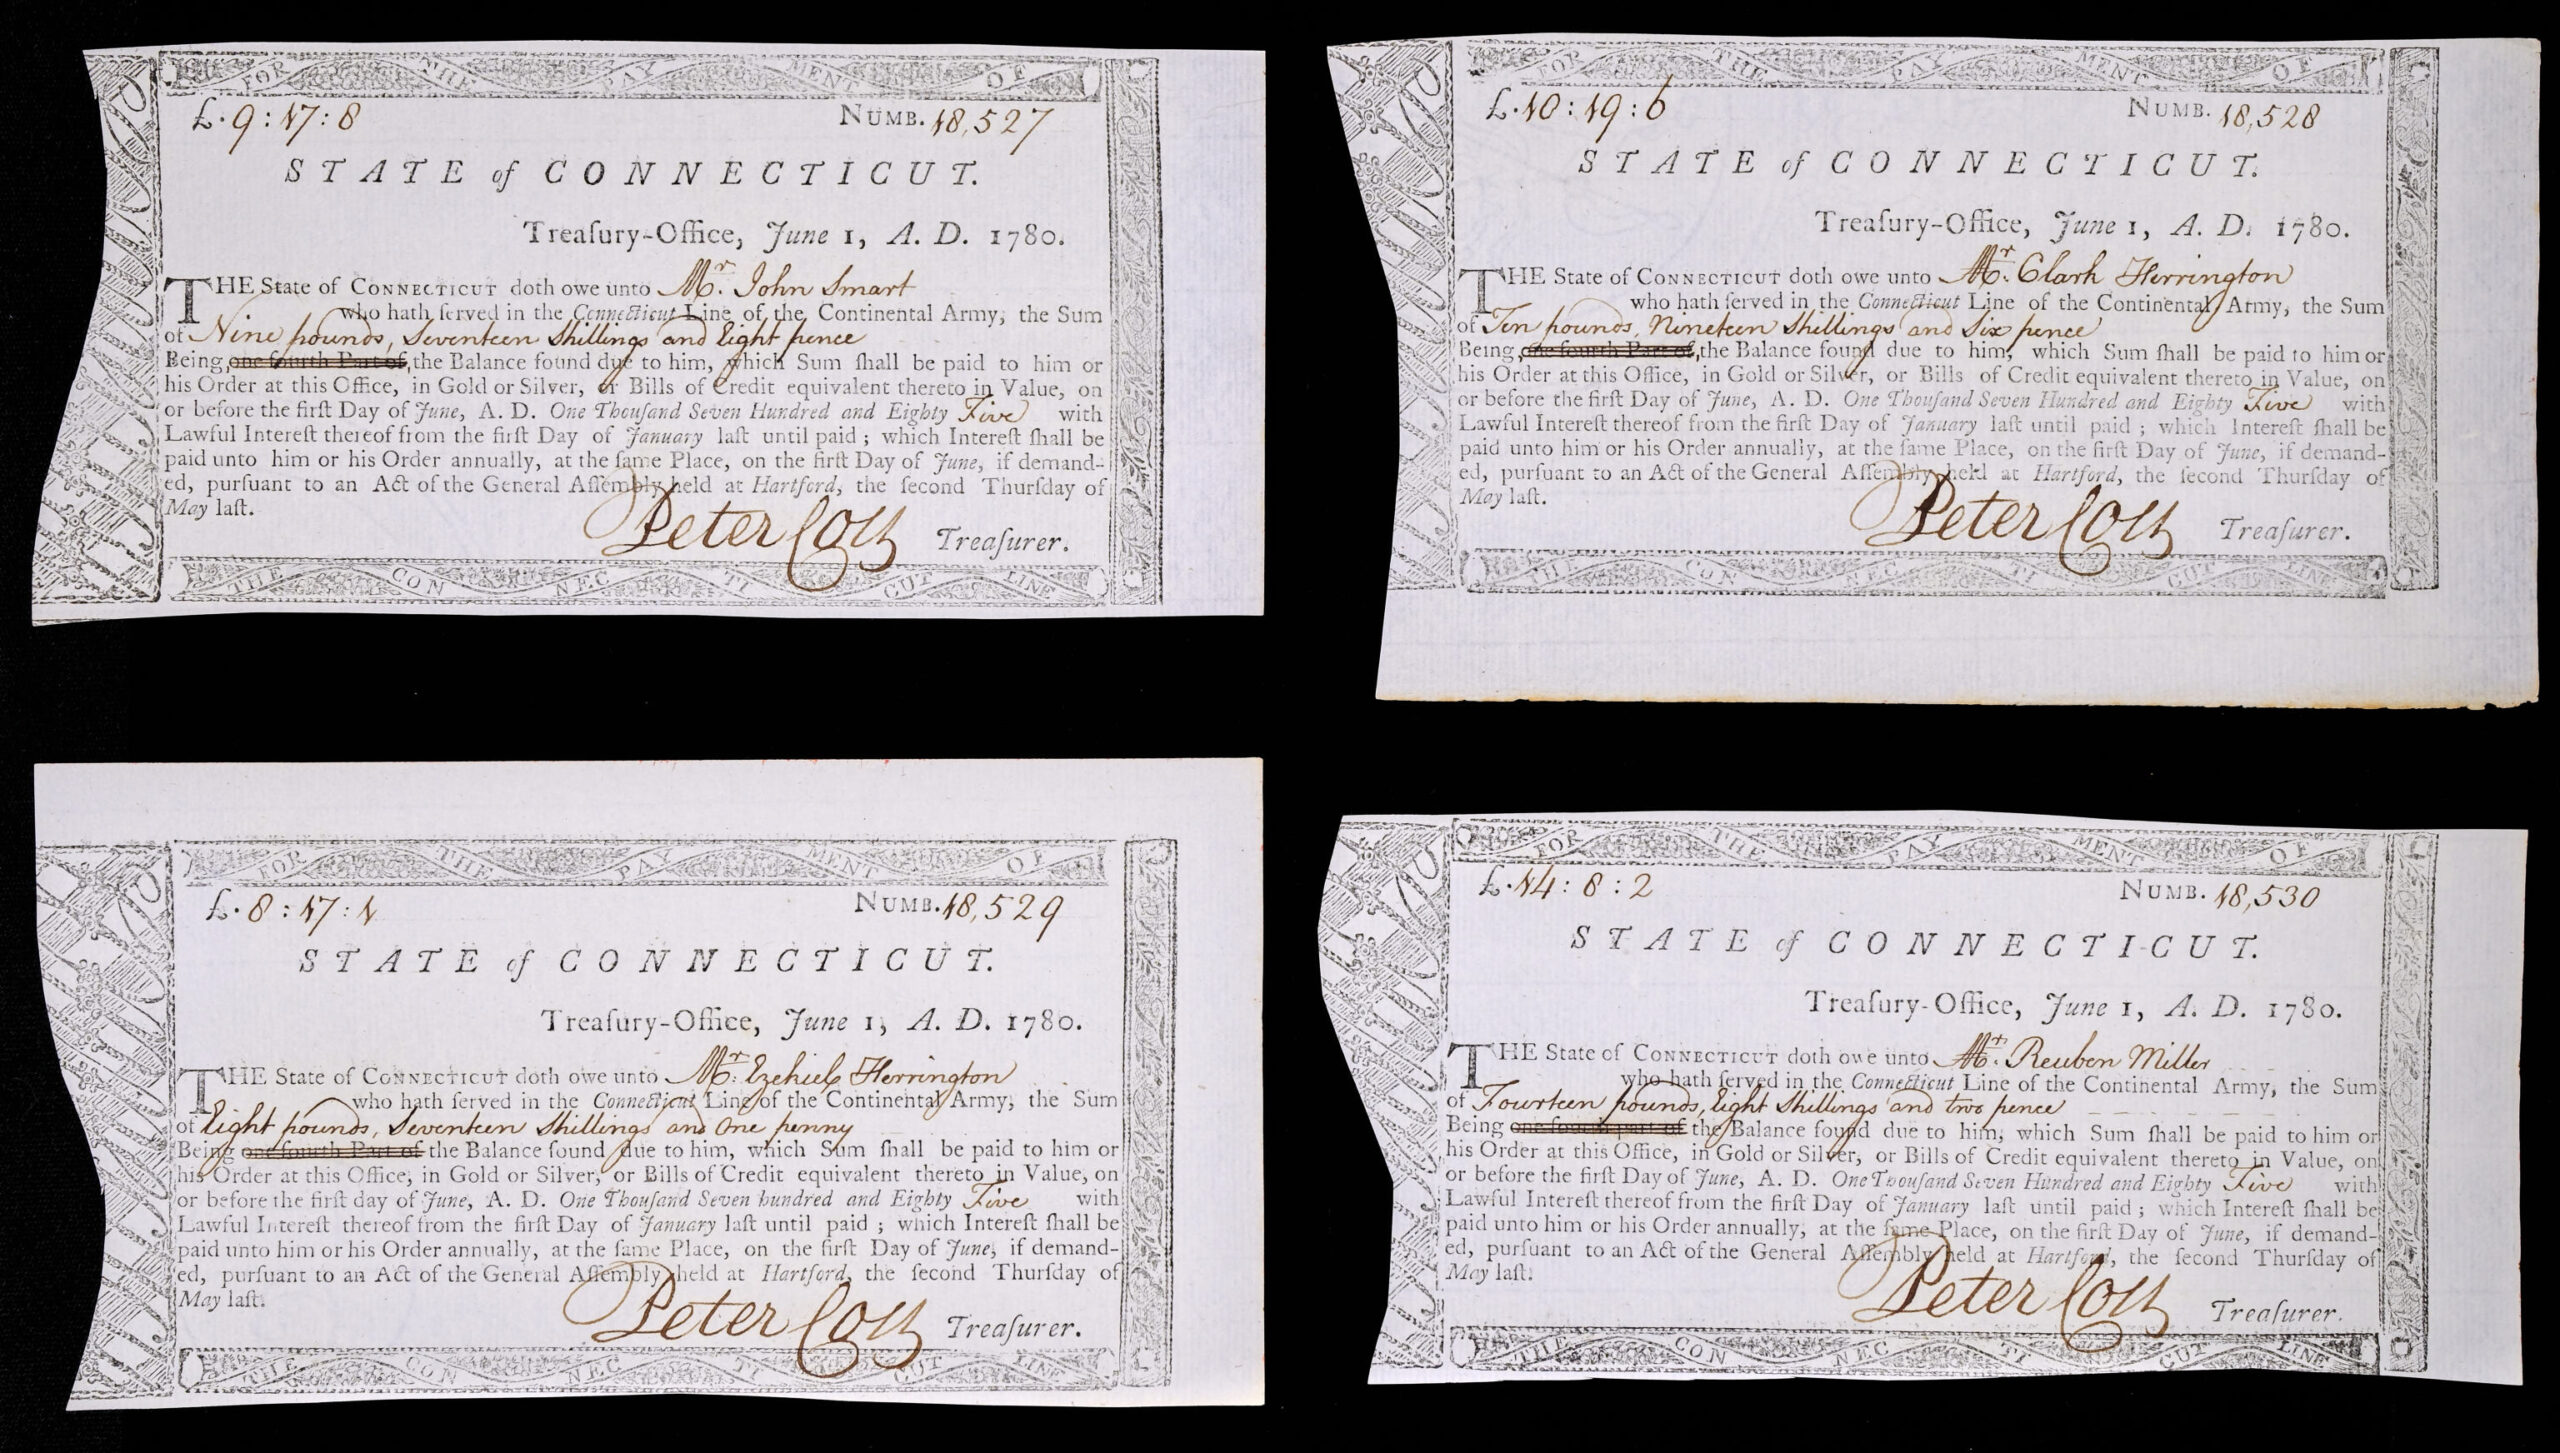 FOR THE PAY MENT OF
£. 9 : 17 : 8 NUMB. 18,527
STATE of CONNECTICUT.
Treaſury-Office, June 1, A. D. 1780.
THE State of CONNECTICUT doth owe unto Mr. John Smart
who hath ſerved in the Connecticut Line of the Continental Army, the Sum
of Nine pounds, Seventeen Shillings and Eight pence
Being, one fourth Part of, the Balance found due to him, which Sum ſhall be paid to him or
his Order at this Office, in Gold or Silver, or Bills of Credit equivalent thereto in Value, on
or before the firſt Day of June, A. D. One Thouſand Seven Hundred and Eighty Five with
Lawful Intereſt thereof from the firſt Day of January laſt until paid ; which Intereſt ſhall be
paid unto him or his Order annually, at the ſame Place, on the firſt Day of June, if demand-
ed, purſuant to an Act of the General Aſſembly held at Hartford, the ſecond Thurſday of
May laſt.
Peter Colt Treaſurer.
THE CON NEC TI CUT LINE
FOR THE PAY MENT OF
£. 10 : 19 : 6 NUMB. 18,528
STATE of CONNECTICUT.
Treaſury-Office, June 1, A. D. 1780.
THE State of CONNECTICUT doth owe unto Mr. Clark Herrington
who hath ſerved in the Connecticut Line of the Continental Army, the Sum
of Ten pounds, Nineteen Shillings and Six pence
Being, one fourth Part of, the Balance found due to him, which Sum ſhall be paid to him or
his Order at this Office, in Gold or Silver, or Bills of Credit equivalent thereto in Value, on
or before the firſt Day of June, A. D. One Thouſand Seven Hundred and Eighty Five with
Lawful Intereſt thereof from the firſt Day of January laſt until paid ; which Intereſt ſhall be
paid unto him or his Order annually, at the ſame Place, on the firſt Day of June, if demand-
ed, purſuant to an Act of the General Aſſembly held at Hartford, the ſecond Thurſday of
May laſt.
Peter Colt Treaſurer.
THE CON NEC TI CUT LINE
FOR THE PAY MENT OF
£. 8 : 17 : 1 NUMB. 18,529
STATE of CONNECTICUT.
Treaſury-Office, June 1, A. D. 1780.
THE State of CONNECTICUT doth owe unto Mr. Ezekiel Herrington
who hath ſerved in the Connecticut Line of the Continental Army, the Sum
of Eight pounds, Seventeen Shillings and One penny
Being one fourth Part of the Balance found due to him, which Sum ſhall be paid to him or
his Order at this Office, in Gold or Silver, or Bills of Credit equivalent thereto in Value, on
or before the firſt day of June, A. D. One Thouſand Seven hundred and Eighty Five with
Lawful Intereſt thereof from the firſt Day of January laſt until paid ; which Intereſt ſhall be
paid unto him or his Order annually, at the ſame Place, on the firſt Day of June, if demand-
ed, purſuant to an Act of the General Aſſembly held at Hartford, the ſecond Thurſday of
May laſt.
Peter Colt Treaſurer.
THE CON NEC TI CUT LINE
FOR THE PAY MENT OF
£. 14 : 8 : 2 NUMB. 18,530
STATE of CONNECTICUT.
Treaſury-Office, June 1, A. D. 1780.
THE State of CONNECTICUT doth owe unto Mr. Reuben Miller
who hath ſerved in the Connecticut Line of the Continental Army, the Sum
of Fourteen pounds, Eight Shillings and two pence
Being one fourth part of the Balance found due to him, which Sum ſhall be paid to him or
his Order at this Office, in Gold or Silver, or Bills of Credit equivalent thereto in Value, on
or before the firſt Day of June, A. D. One Thouſand Seven Hundred and Eighty Five with
Lawful Intereſt thereof from the firſt Day of January laſt until paid ; which Intereſt ſhall be
paid unto him or his Order annually, at the ſame Place, on the firſt Day of June, if demand-
ed, purſuant to an Act of the General Aſſembly held at Hartford, the ſecond Thurſday of
May laſt.
Peter Colt Treaſurer.
THE CON NEC TI CUT LINE